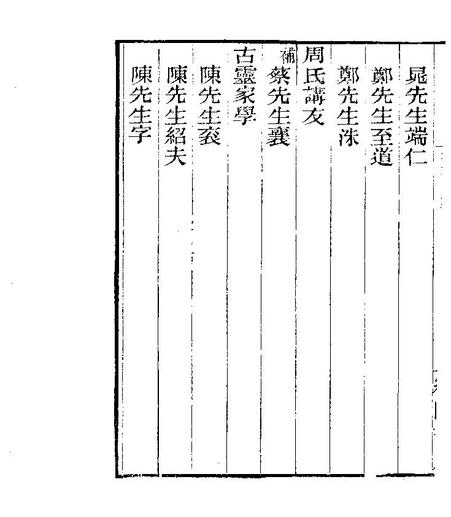 晁先生端仁
鄭先生至道
鄭先生洙
周氏講友
補蔡先生襄
古靈家學
陳先生袞
陳先生紹夫
陳先生字